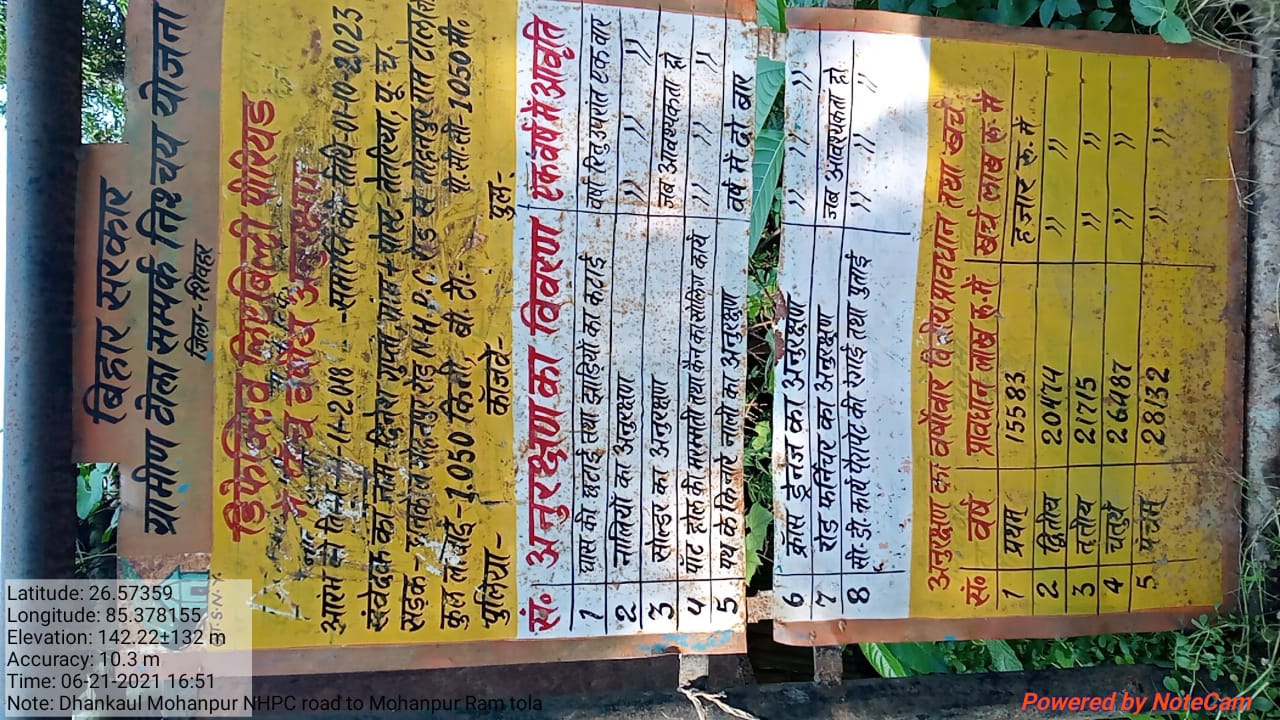 बिहार सरकार
ग्रामीण टोला सम्पर्क निश्चय योजना
जिला-शिवहर
डिफेक्टिव लिएबिल्टी पीरियड
पंच वर्षीय अनुरक्षण
-11-2018 -समाप्ति की तिथि-01-10-2023
संवेदक का नाम-दिनेश गुप्ता, ग्राम+पोस्ट तेतरिया, पू. च.
सड़क- धनकौल मोहनपुर रोड N.H.P.C रोड से मोहनपुर राम टोला
कुल लंबाई- 1.050 किमी, बी. टी.- पी.सी.सी- 1050 मी.
पुलिया- कॉजवे- पुल-
सं० अनुरक्षण का विवरण एक वर्ष में आवृति
1 घास की छटाई तथा झाड़ियों का कटाई वर्षा रितु उपरांत एक बार
2 नालियों का अनुरक्षण " " " "
3 सोल्डर का अनुरक्षण जब आवश्यकता हो
4 पॉट होल की मरम्मती तथा कैच का सीलिंग कार्य " " " "
5 पथ के किनारे नालो का अनुरक्षण वर्ष में दो बार
6 क्रॉस ड्रेनेज का अनुरक्षण " " "
7 रोड फर्निचर का अनुरक्षण जब आवश्यकता हो
8 सी.डी. कार्य पैरापेट की रंगाई तथा पुताई " " "
अनुरक्षण का वर्षवार वित्तीय प्रावधान तथा खर्च
सं० वर्ष प्रावधान लाख रु. में खर्च लाख रु. में
1 प्रथम् 15583 हजार रु. में
2 द्वितीय 20474 " "
3 तृतीय 21715 " "
4 चतुर्थ 26487 " "
5 पंचम् 28132 " "
Latitude: 26.57359
Longitude: 85.378155
Elevation: 142.22±132 m
Accuracy: 10.3 m
Time: 06-21-2021 16:51
Note: Dhankaul Mohanpur NHPC road to Mohanpur Ram tola
Powered by NoteCam